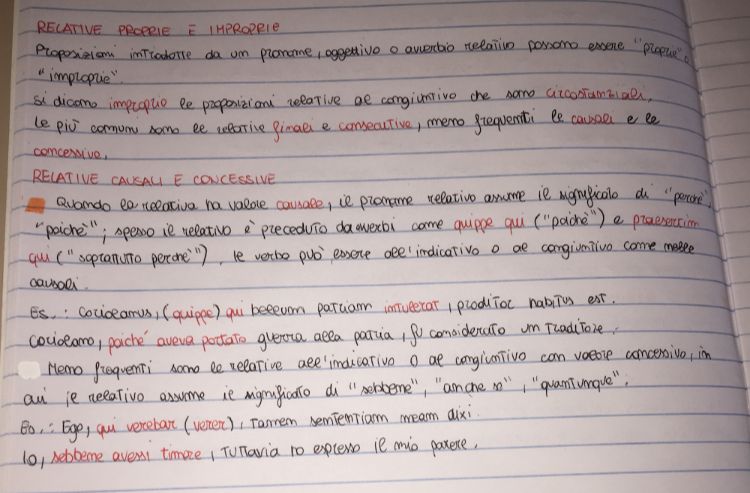 RELATIVE PROPRIE E IMPROPRIE
Proposizioni introdotte da un pronome, aggettivo o avverbio relativo possono essere "proprie" o
"improprie".
Si dicono improprie le proposizioni relative al congiuntivo che sono circostanziali.
Le più comuni sono le relative finali e consecutive, meno frequenti le causali e le
concessive.
RELATIVE CAUSALI E CONCESSIVE
Quando la relativa ha valore causale, il pronome relativo assume il significato di "perché"
"poiché"; spesso il relativo è preceduto da avverbi come quippe qui ("poiché") e praesertim
qui ("soprattutto perché"). Le verbo può essere all'indicativo o al congiuntivo come nelle
causali.
Es.: Coriolanus, (quippe) qui bellum patriam intulerat, proditor habitus est.
Coriolano, poiché aveva portato guerra alla patria, fu considerato un traditore.
Meno frequenti sono le relative all'indicativo o al congiuntivo con valore concessivo, in
cui il relativo assume il significato di "sebbene", "anche se", "quantunque".
Es.: Ego, qui verebar (verer), tamen sententiam meam dixi.
Io, sebbene avessi timore, tuttavia ho espresso il mio parere.